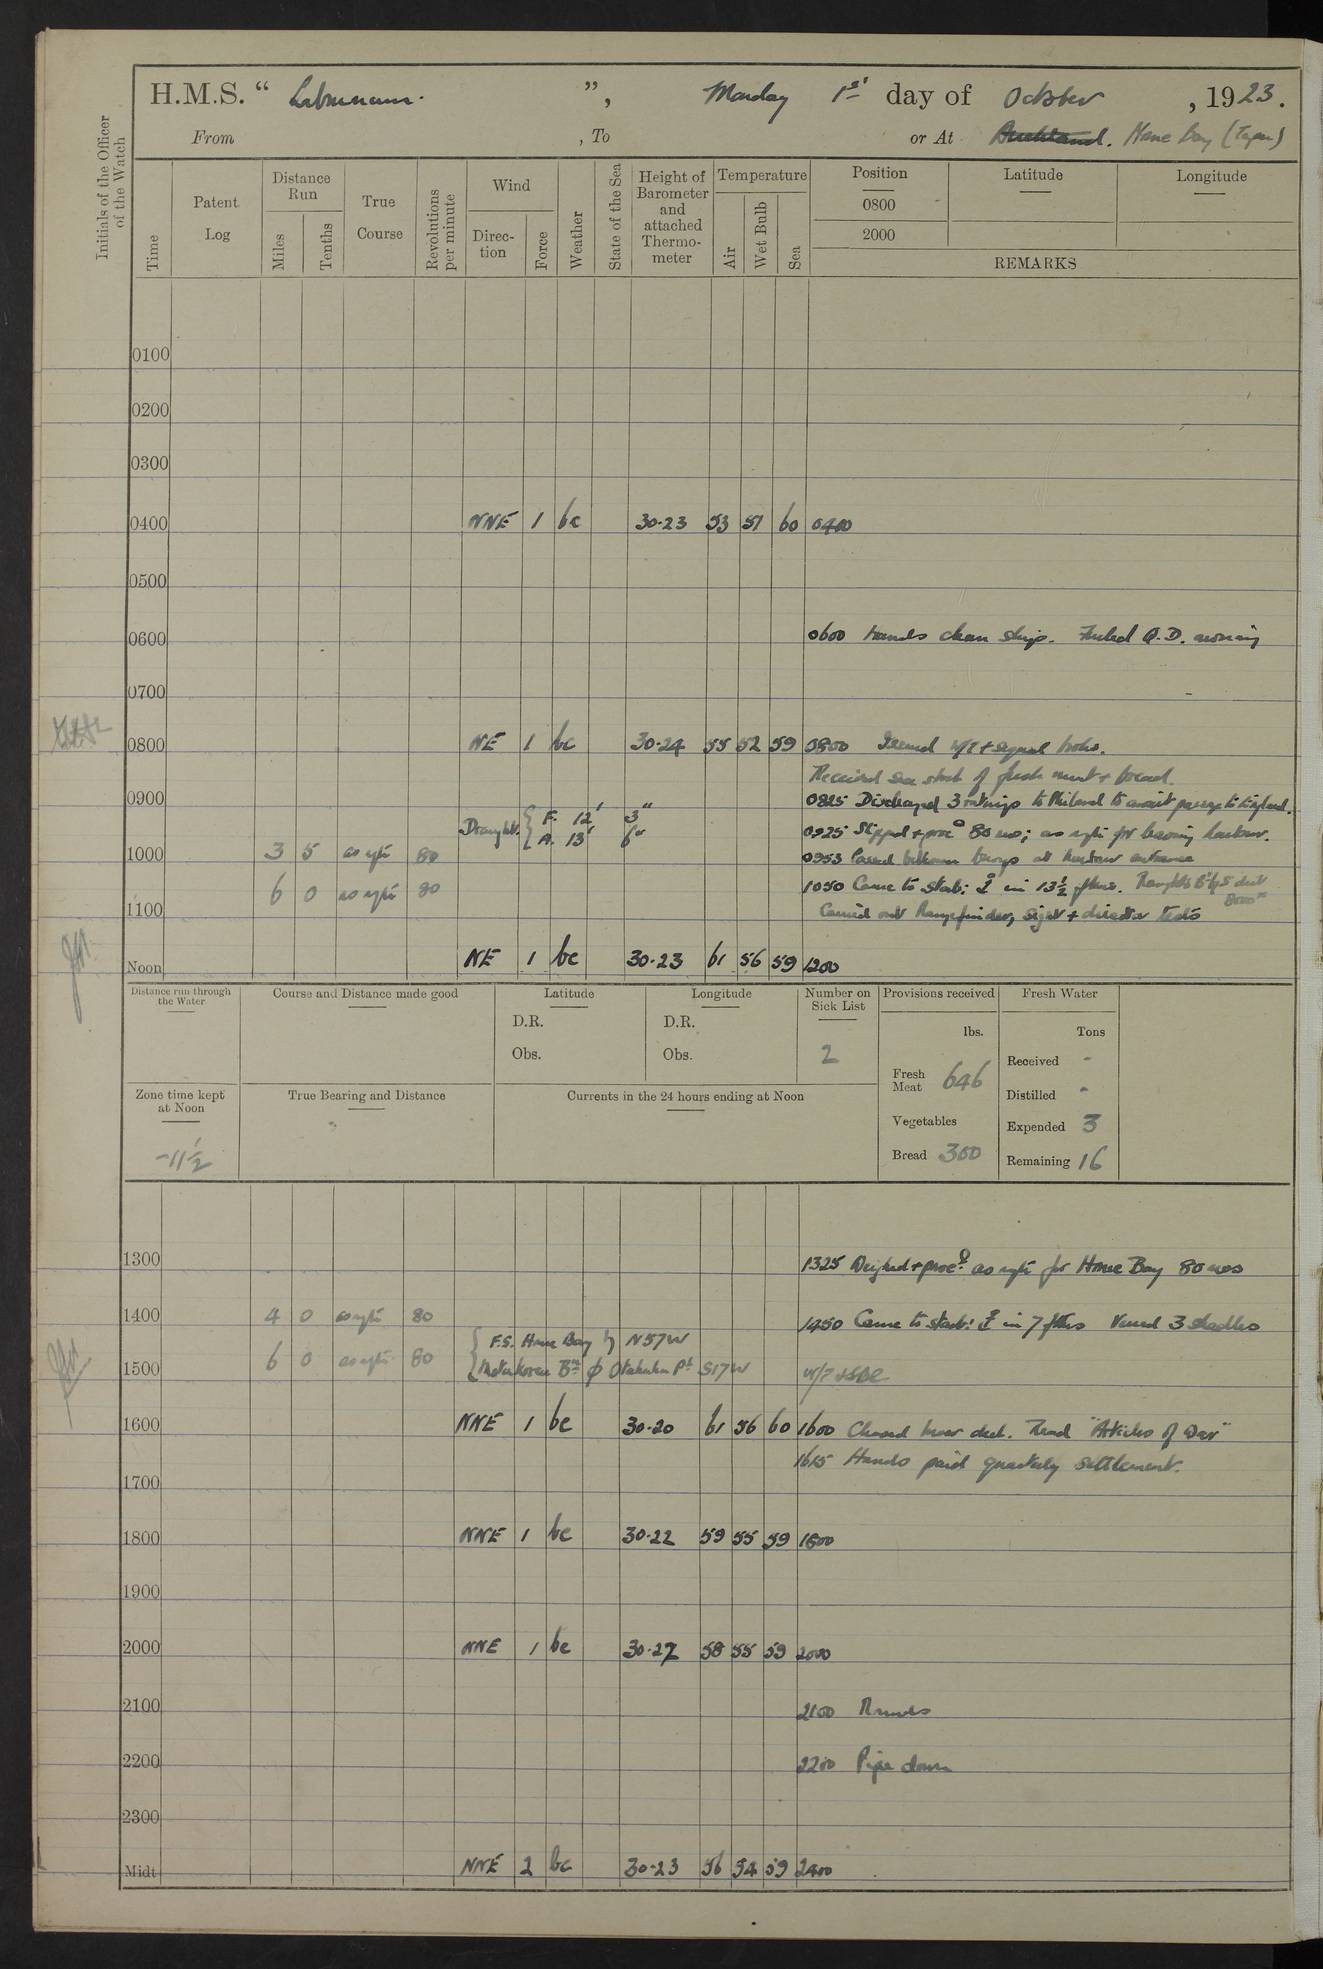 H.M.S. “ Laburnum. ”, Monday 1st day of October , 1923.
From , To or At Auckland. Home Bay
Initials of the Officer of the Watch
Time
Patent Log
Distance Run
Miles
Tenths
True Course
Revolutions per minute
Wind
Direction
Force
Weather
State of the Sea
Height of Barometer and attached Thermometer
Temperature
Air
Wet Bulb
Sea
Position
0800
2000
Latitude
Longitude
REMARKS
0100
0200
0300
0400 NNE 1 bc 30·23 53 51 60 0400
0500
0600 0600 Hands clean ship. Q.D. awning
0700
0800 NE 1 bc 30·24 55 52 59 0800 W/T + signal books.
Received sea stock of fresh meat + bread.
0900 0825 Discharged 3 ratings to Philomel to await passage to England.
Draught { F. 12' 3"
{ A. 13' 6"
0925 Slipped + procd 80 revs; as reqte for leaving harbour.
1000 3 5 as reqte 80 0953 Passed between buoys at harbour entrance
6 0 as reqte 80 1050 Came to starbd ⚓ in 13½ fthms.
1100 Carried out Rangefinder, sight + director tests
Noon NE 1 bc 30·23 61 56 59 1200
Distance run through the Water
Course and Distance made good
Latitude
D.R.
Obs.
Longitude
D.R.
Obs.
Number on Sick List
2
Provisions received
lbs.
Fresh Meat 646
Vegetables
Bread 300
Fresh Water
Tons
Received -
Distilled -
Expended 3
Remaining 16
Zone time kept at Noon
-11½
True Bearing and Distance
Currents in the 24 hours ending at Noon
1300 1325 Weighed + procd as reqte for Home Bay 80 revs
1400 4 0 as reqte 80 1450 Came to starbd ⚓ in 7 fthms Veered 3 shackles
{ F.S. Home Bay N57W
1500 6 0 as reqte 80 { Motukorea Bn ϕ Otahuhu Pt S17W
1600 NNE 1 bc 30·20 61 56 60 1600 Cleared lower deck. Read "Articles of War"
1615 Hands paid quarterly settlement.
1700
1800 NNE 1 bc 30·22 59 55 59 1800
1900
2000 NNE 1 bc 30·27 58 55 59 2000
2100 2100 Rounds
2200 2200 Pipe down
2300
Midt NNE 2 bc 30·23 56 54 59 2400